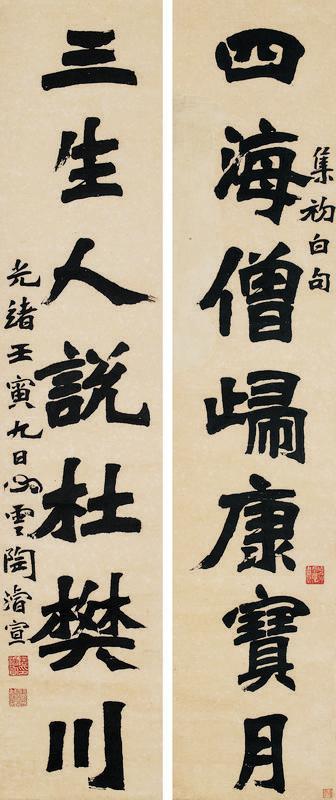 四海僧歸康寶月
集初白句
三生人說杜樊川
光緒壬寅九日心雲陶濬宣